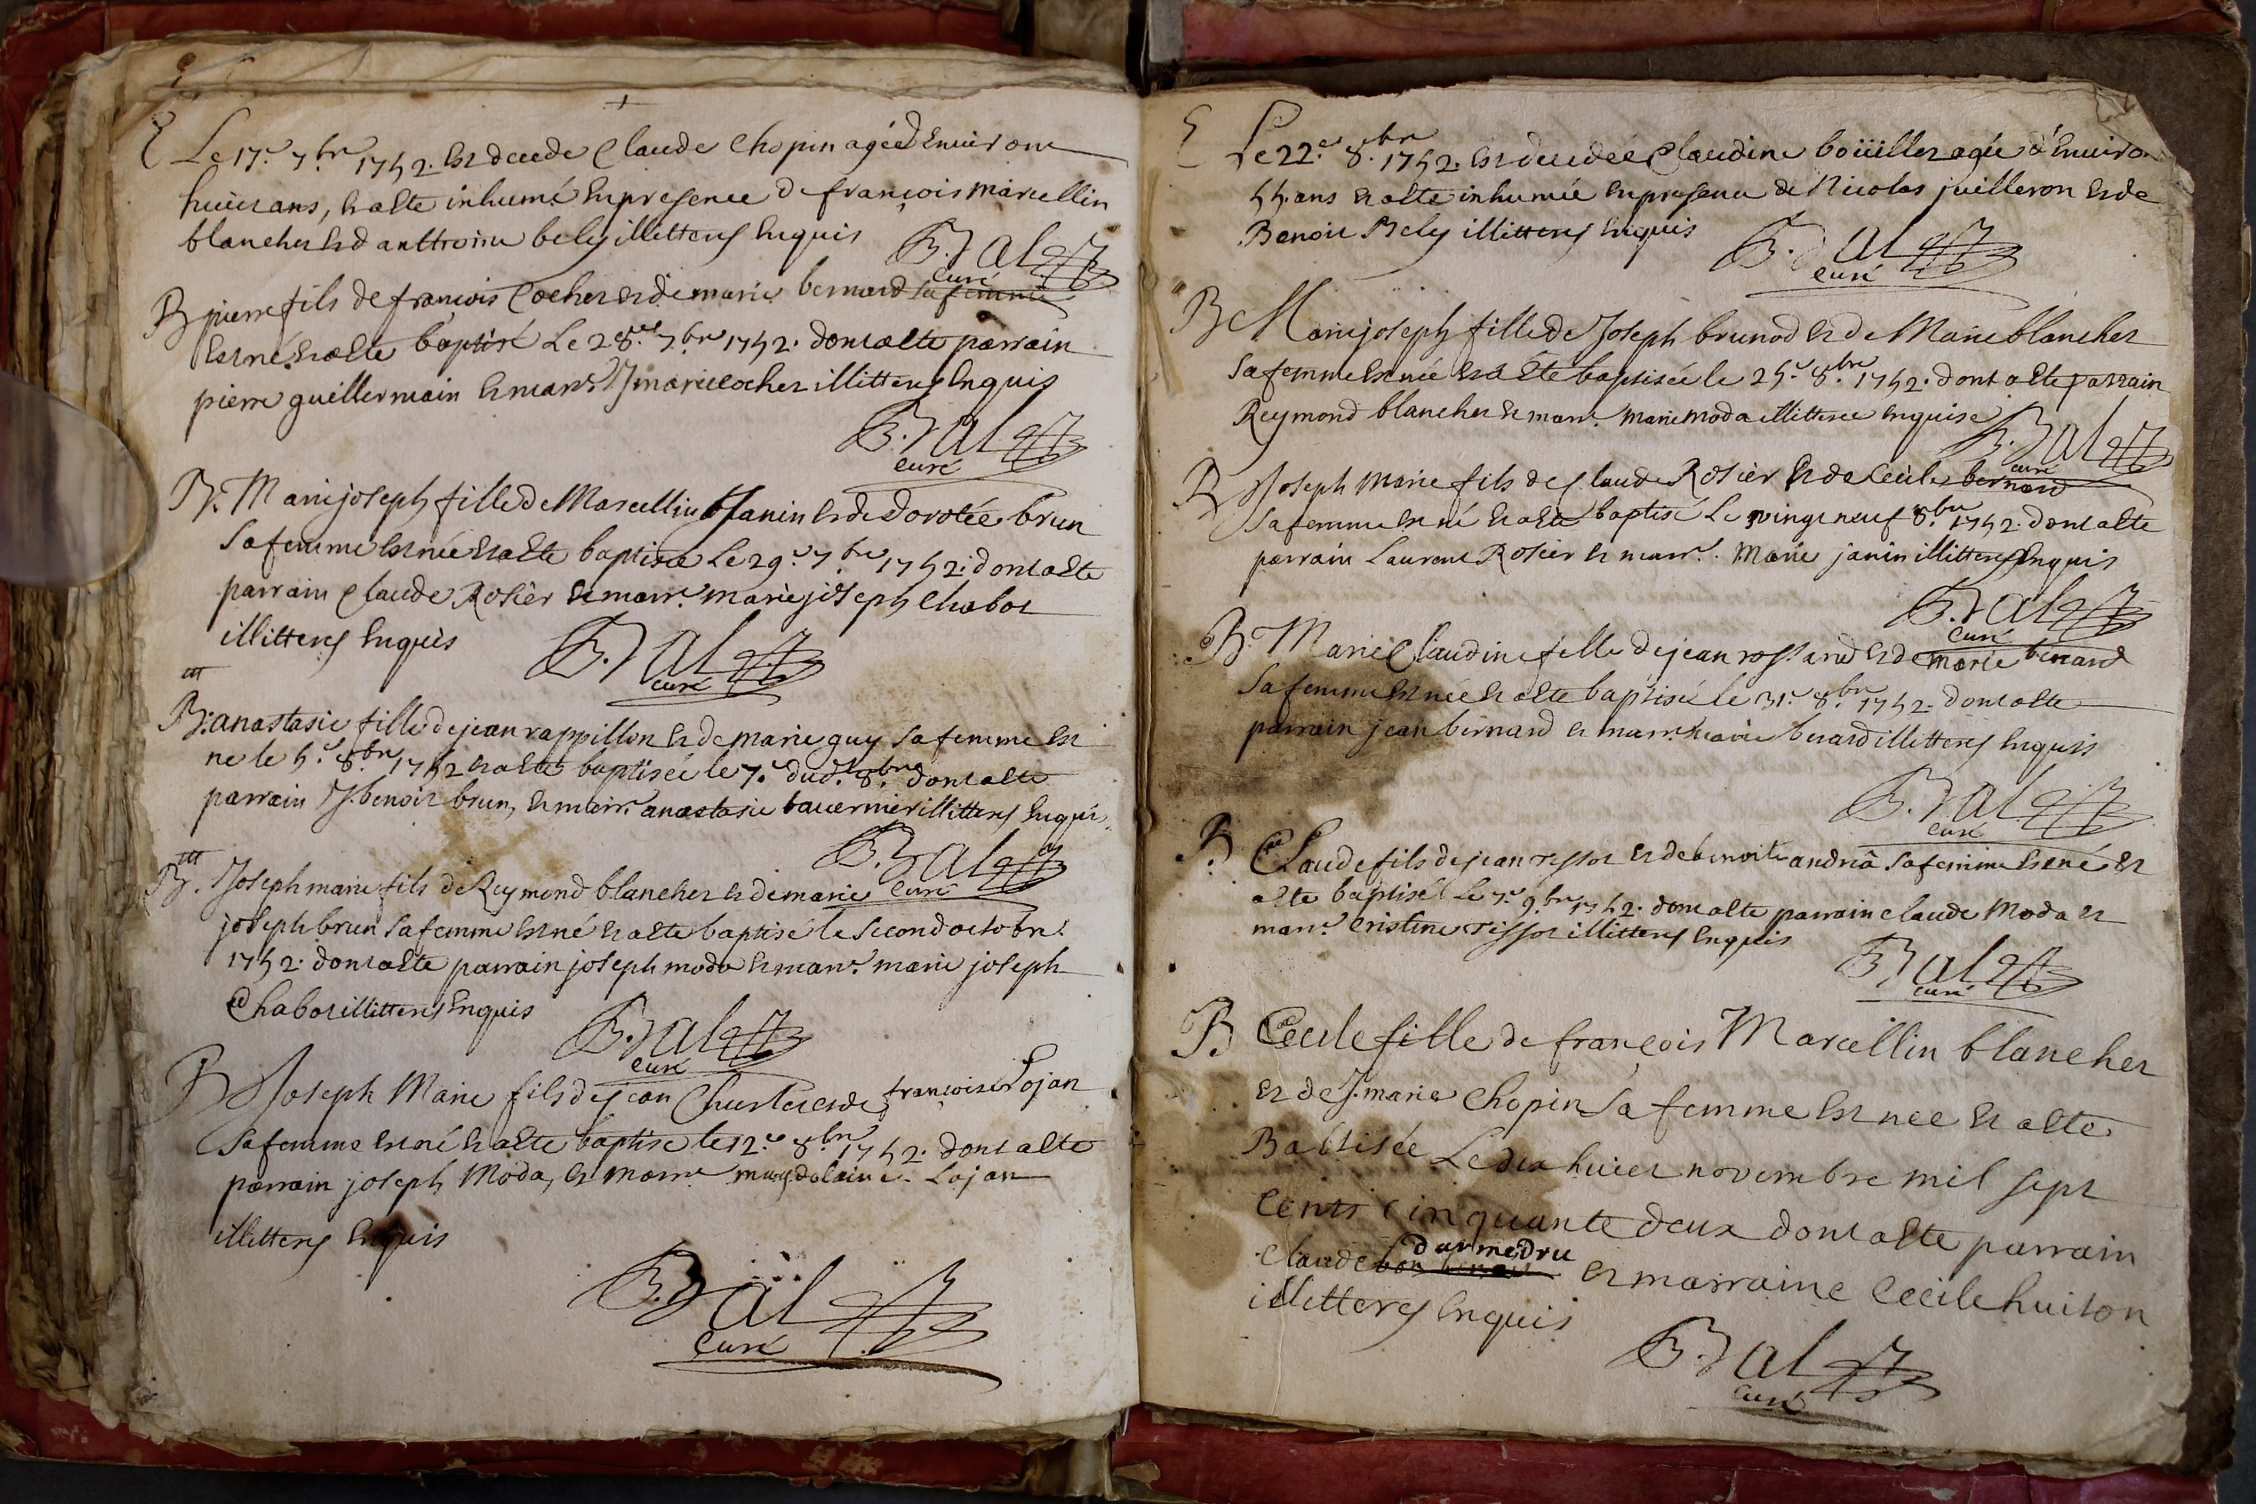 E Le 17e 7bre 1752. Est decede Claude Chopin agé d'Environ
huict ans, Et a Esté inhumé En presence de françois Marcellin
blancher Et d'anttoine bely illitterés Enquis B. Bal
curé
B pierre fils de françois Cocher Et de marie bernard sa femme
Est né Et a Esté baptisé Le 28e 7bre 1752. dont a Esté parrain
pierre guillermain Et marr. J marie cocher illitterés Enquis
B. Bal
curé
B. Marie joseph fille de Marcellin Janin Et de Dorotée brun
sa femme Est née Et a Esté baptisée Le 29e 7bre 1752. dont a Esté
parrain Claude Rosier Et marr. marie joseph Chabot
illitterés Enquis B. Bal
curé
B. anastasie fille de jean rappillon Et de marie guy sa femme Est
né le 5e 8bre 1752 Et a Esté baptisée le 7e dud. 8bre dont a Esté
parrain J. benoit brun, Et marr. anastasie tavernier illitterés Enquis
B. Bal
curé
B. Joseph marie fils de Reymond blancher Et de marie
joseph brun sa femme Est né Et a Esté baptisé le second octobre
1752. dont a Esté parrain joseph moda Et marr. marie joseph
Chabot illitterés Enquis B. Bal
curé
B Joseph Marie fils de jean Et de françoise Lojan
sa femme Est né Et a Esté baptisé le 12e 8bre 1752. dont a Esté
parrain joseph Moda, Et marr. magdelaine Lojan
illitterés Enquis
B. Bal
curé
E Le 22e 8bre 1752. Est decedée Claudine boüiller agée d'Environ
55. ans Et a Esté inhumée En presence de Nicolas juilleron Et de
Benoit Bely illitterés Enquis B. Bal
curé
B Marie joseph fille de Joseph brunod Et de Marie blancher
sa femme Est née Et a Esté baptisée le 25e 8bre 1752. dont a Esté parrain
Reymond blancher Et marr. marie moda illitteree Enquise
B. Bal
curé
B Joseph Marie fils de Claude Rosier Et de Cecile bernard
sa femme Est né Et a Esté baptisé Le vingt neuf 8bre 1752. dont a Esté
parrain Laurent Rosier Et marr. Marie janin illitterés Enquis
B. Bal
curé
B. Marie Claudine fille de jean rossand Et de marie benard
sa femme Est née Et a Esté baptisé le 31e 8bre 1752. dont a Esté
parrain jean bernard Et marr. marie berard illitterés Enquis
B. Bal
curé
B. Claude fils de jean tissot Et de benoite andriâ sa femme Est né Et
a Esté baptisé Le 7e 9bre 1752. dont a Esté parrain claude Moda Et
marr. Cristine tissot illitterés Enquis
B. Bal
curé
B Cecile fille de françois Marcellin blancher
Et de J. marie Chopin sa femme Est nee Et a Esté
Babtisée Le dix huict novembre mil sept
Cents Cinquante deux dont a Esté parrain
darmedru
Claude Et marraine Cecile huiton
illitterés Enquis
B. Bal
curé